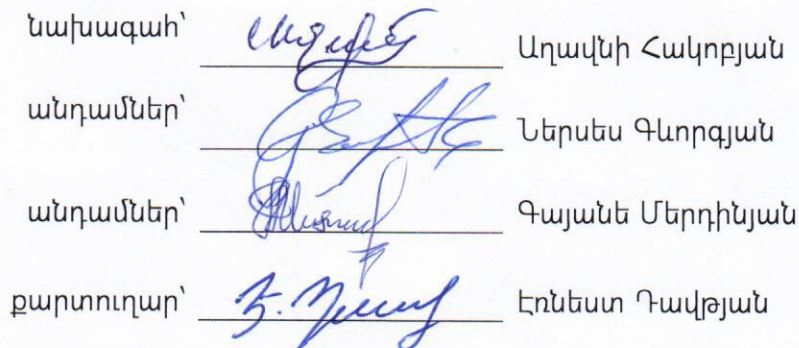 նախագահ՝ Աղավնի Հակոբյան
անդամներ՝ Ներսես Գևորգյան
անդամներ՝ Գայանե Մերդինյան
քարտուղար՝ Էռնեստ Դավթյան